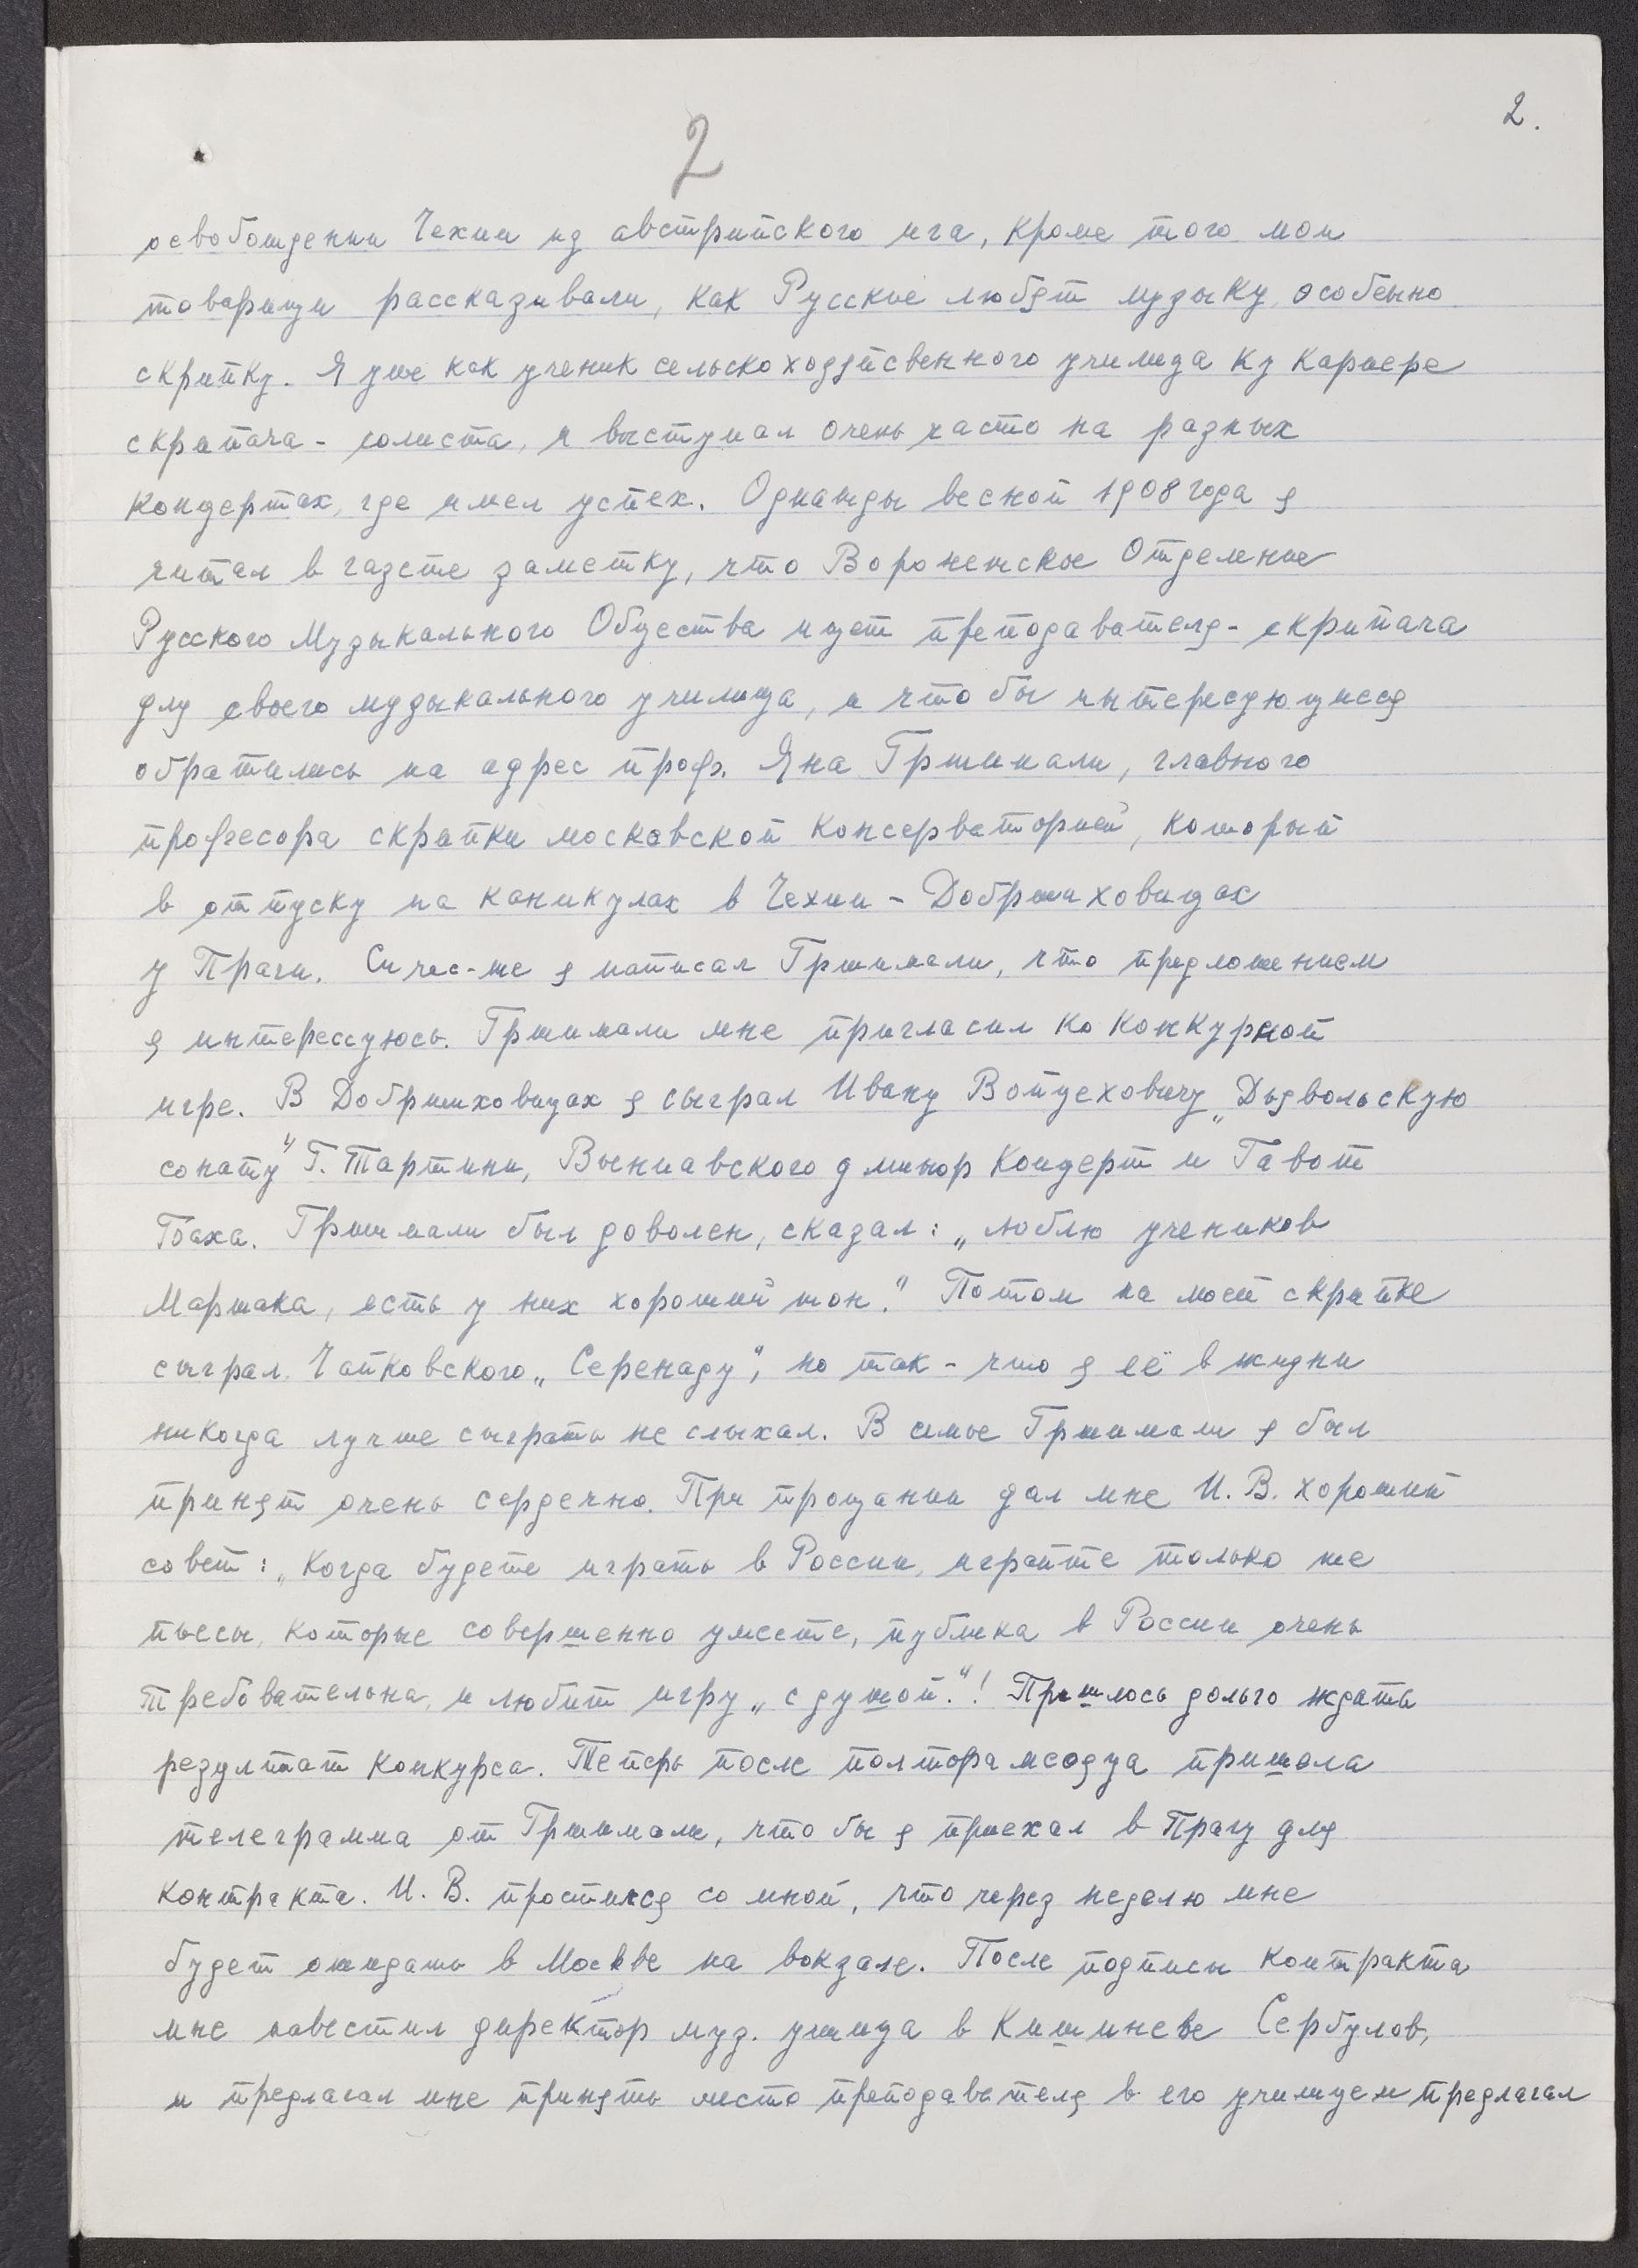 2.
2
освобождении Чехии из австрийского ига, кроме того мои
товарищи рассказивали, как Русские любят музыку, особенно
скрипку. Я уже как ученик сельскохозяйсвенного училища ку карьере
скрипача - солиста, я выступал очень часто на разных
концертах, где имел успех. Однажды весной 1908 года я
читал в газете заметку, что Воронежское Отделение
Русского Музыкального Общества ищет преподавателя - скрипача
для своего музыкального училища, и что бы интересующиеся
обратились на адрес проф. Яна Гржимали, главного
профессора скрипки московской консерваторией, который
в отпуску на каникулах в Чехии - Добржиховицах
у Праги. Сичас-же я написал Гржимали, что предложением
я интерессуюсь. Гржимали мне пригласил ко конкурной
игре. В Добржиховицах я сыграл Ивану Войцеховичу „Дьявольскую
сонату" Г. Тартини, Вьениавского д минор Концерт и Гавот
Баха. Гржимали был доволен, сказал: „люблю учеников
Маржака, есть у них хороший тон." Потом на моей скрипке
сыграл Чайковского „Серенаду", но так - что я её в жизни
никогда лучше сыграть не слыхал. В семье Гржимали я был
принят очень сердечно. При прощании дал мне И. В. хороший
совет: „Когда будете играть в России, играйте только те
пьесы, которые совершенно умеете, публика в России очень
требовательна, и любит игру „с душой."! Пришлось долго ждать
результат конкурса. Теперь после полтора месяца пришла
телеграмма от Гржимали, что бы я приехал в Прагу для
контракта. И. В. простился со мной, что через неделю мне
будет ожидать в Москве на вокзале. После подписи контракта
мне навестил директор муз. училища в Кишиневе Сербулов,
и предлагал мне принять место преподавателя в его училище и предлагал